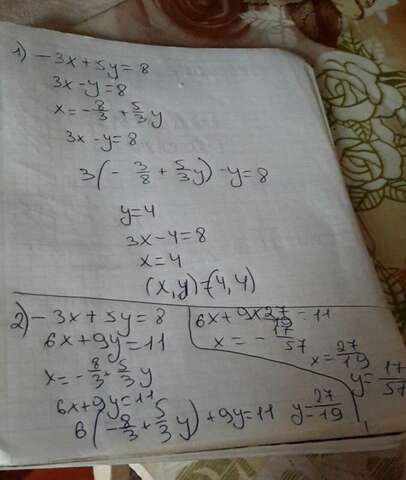 1) -3x+5y=8
3x-y=8
x=-8/3+5/3y
3x-y=8
3(-3/8+5/3y)-y=8
y=4
3x-4=8
x=4
(x,y)=(4,4)
2) -3x+5y=8
6x+9y=11
x=-8/3+5/3y
6x+9y=11
6(-8/3+5/3y)+9y=11
y=27/19
6x+9x27/19=11
x=-17/57
x=27/19
y=17/57